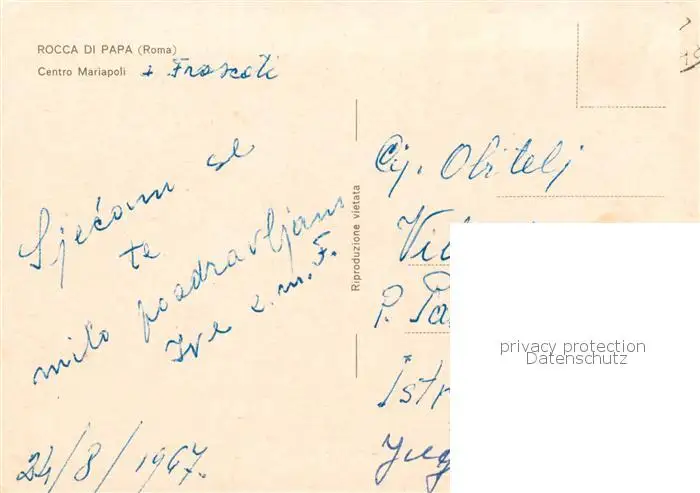 ROCCA DI PAPA (Roma)
Centro Mariapoli + Frascati
Sjećam se
te
milo pozdravljam
Ive s.m.F.
24/8/1967.
Riproduzione vietata
Cij. Obitelj
P.
privacy protection
Datenschutz